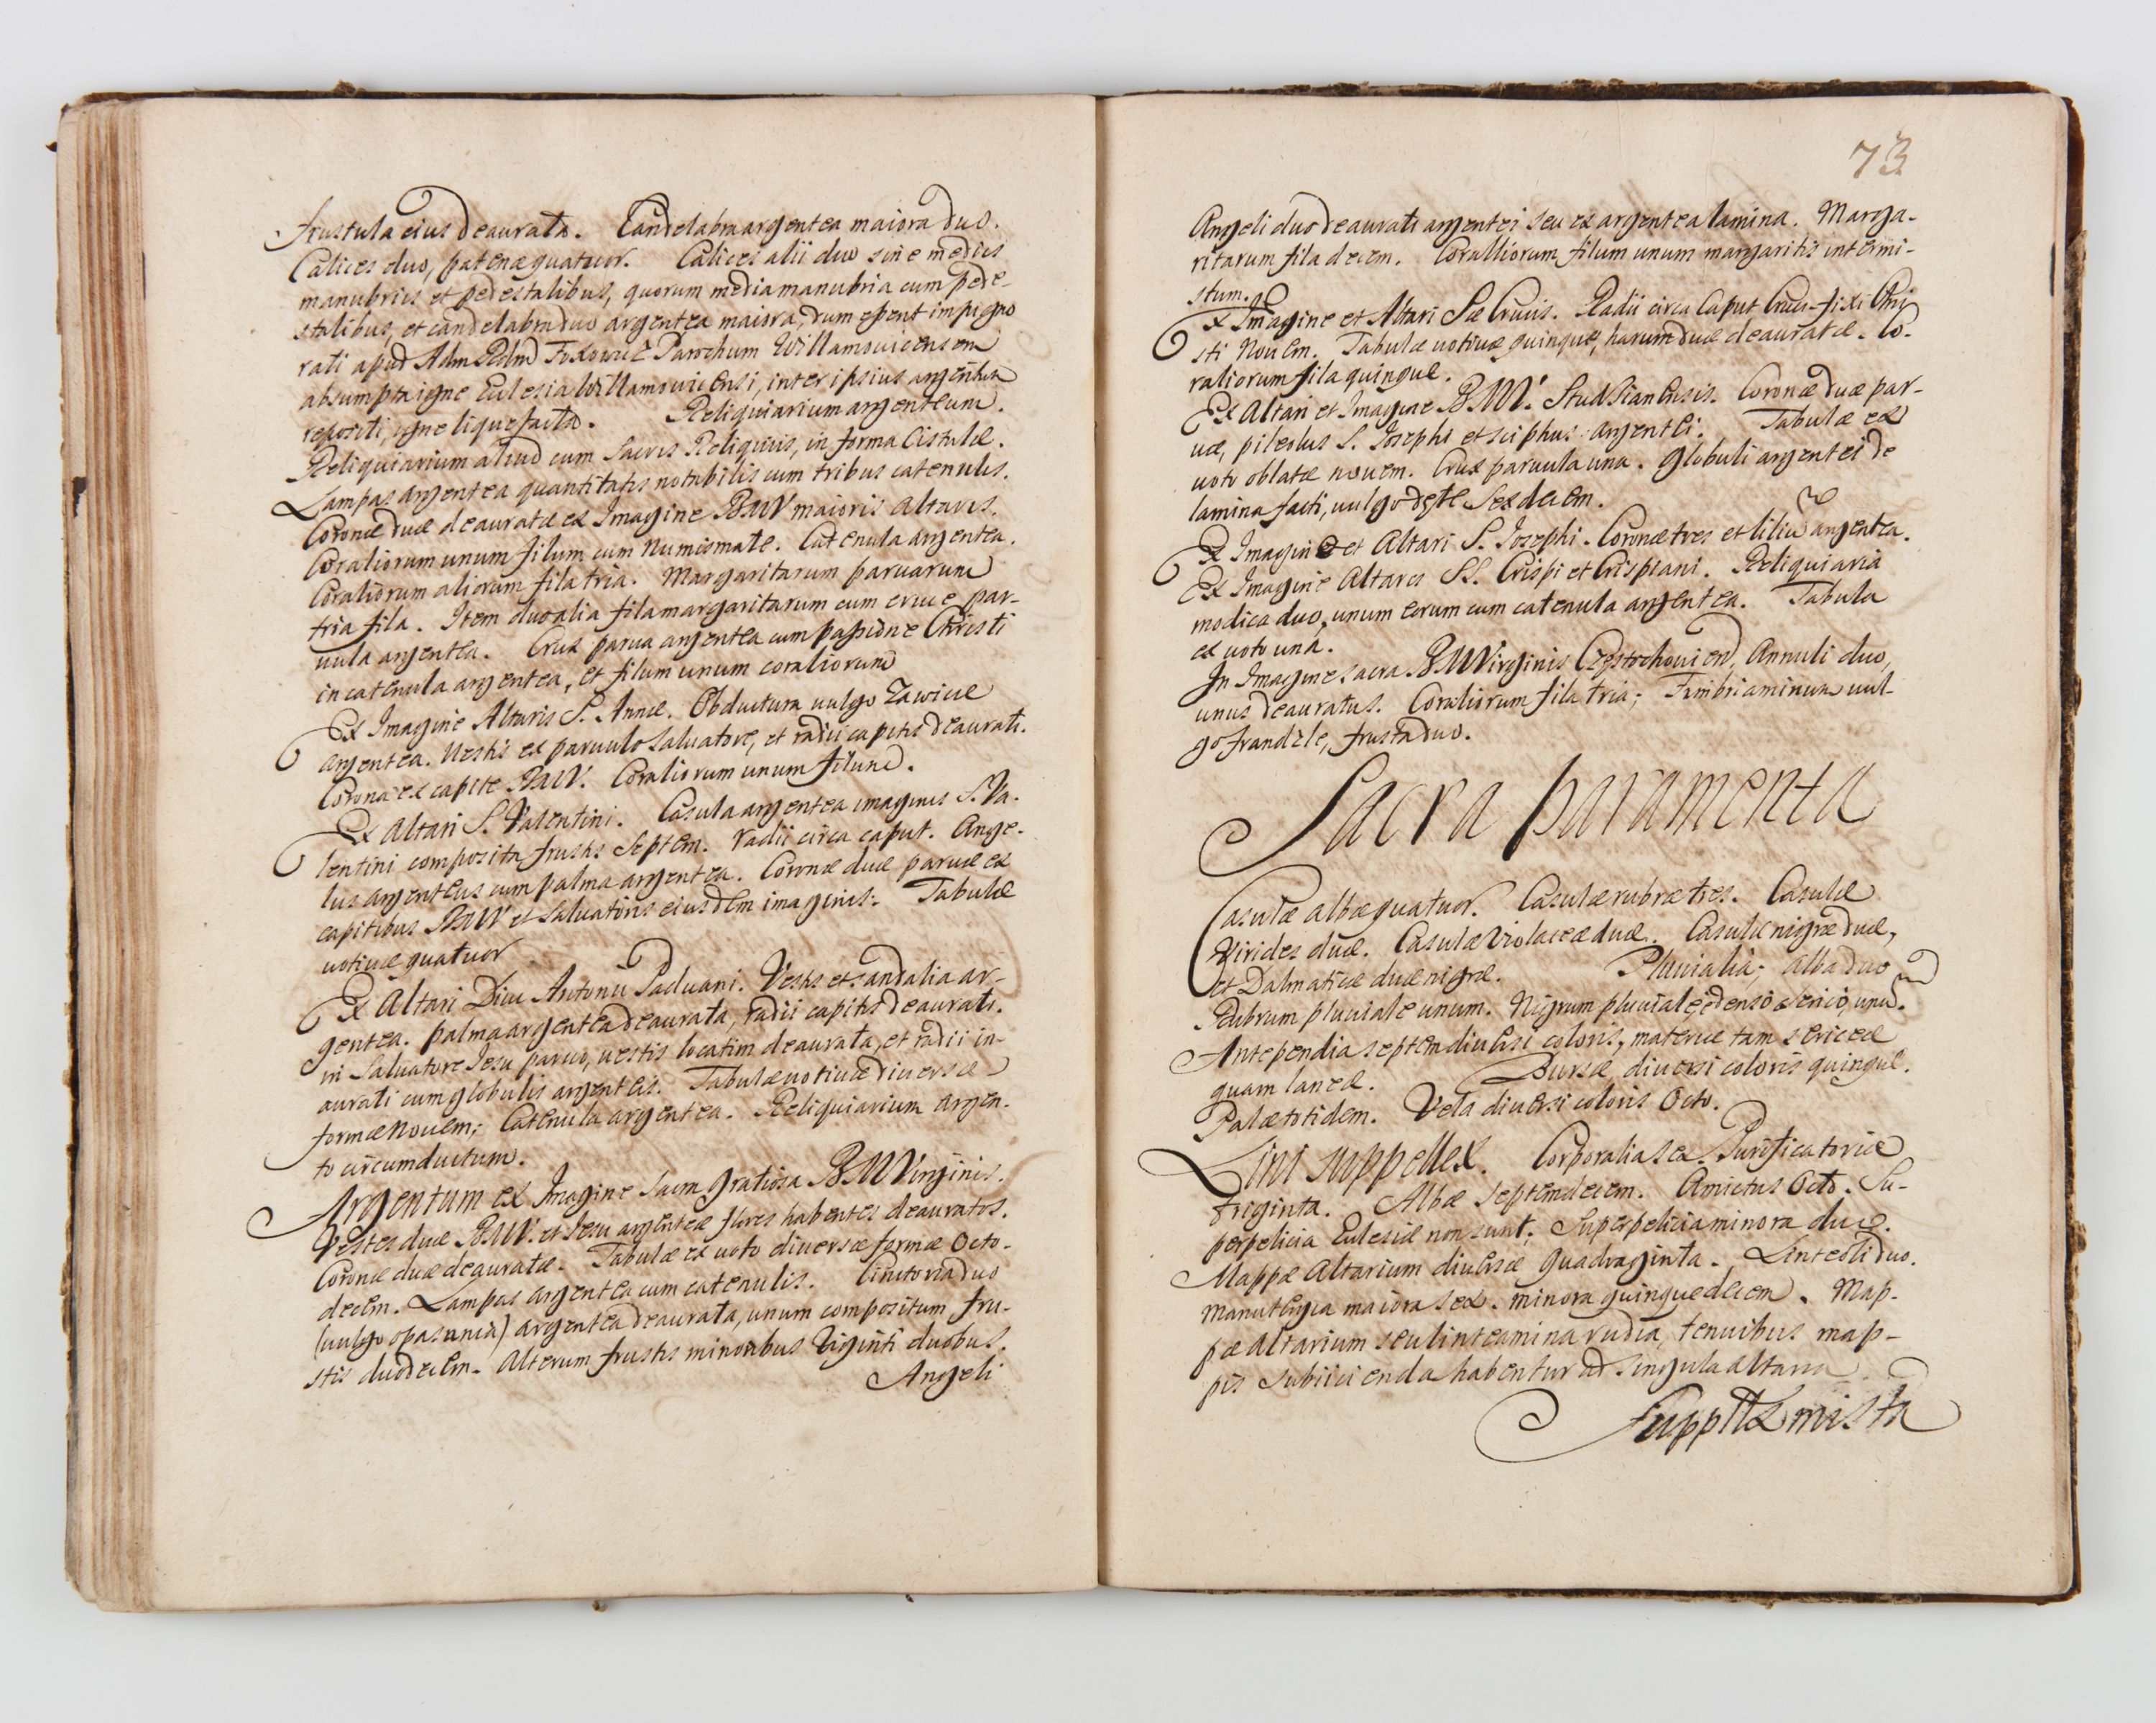 frustula eius deaurata. Candelabra argentea maiora duo.
Calices duo, patenæ quatuor. Calices alii duo sine mediis
manubriis et pedestalibus, quorum media manubria cum pede-
stalibus, et candelabra duo argentea maiora, dum essent impigno
rati apud Adm Rdm Parochum Willamouicensem
absumpta igne Eclesia Willamouicensi, inter ipsius argentum
repositi, igne liquefacta. Reliquiarium argenteum.
Reliquiarium aliud cum Sacris Reliquiis, in forma Cistulæ.
Lampas argentea quantitatis notabilis cum tribus catenulis.
Coronæ duæ deauratæ ex Imagine BMV maioris Altaris.
Coraliorum unum filum cum Numismate. Catenula argentea.
Coraliorum aliorum fila tria. Margaritarum paruarum
tria fila. Item duo alia fila margaritarum cum cruce par-
uula argentea. Crux parua argentea cum passione Christi
in catenula argentea, et filum unum coraliorum
Ex Imagine Altaris S. Annæ. Obductura uulgo Zawicie
argentea. Uestis ex paruulo Saluatore, et radii capitis deaurati.
Corona ex capite BMV. Coraliorum unum filum.
Ex Altari S. Valentini. Casula argentea imaginis S. Va-
lentini composita frustis Septem. radii circa caput. Ange-
lus argenteus cum palma argentea. Coronæ duæ paruæ ex
capitibus BMV et Saluatoris eiusdem imaginis. Tabulæ
uotiuæ quatuor
Ex Altari Diui Antonii Paduani. Vestis et sandalia ar-
gentea. palma argentea deaurata, radii capitis deaurati.
in Saluatore Iesu paruo, uestis locatim deaurata, et radii in-
aurati cum globulis argenteis. Tabulæ uotiuæ diuersæ
formæ Nouem; Catenula argentea. Reliquiarium argen-
to circumductum.
Argentum ex Imagine Sacra gratiosa BMVirginis.
Vestes duæ BMV. et Iesu argenteæ flores habentes deauratos.
Coronæ duæ deauratæ. Tabulæ ex uoto diuersæ formæ Octo-
decem. Lampas argentea cum catenulis. Cinctoria duo
(uulgo opasania) argentea deaurata, unum compositum fru-
stis duodecem. Alterum frustis minoribus Uiginti duobus.
Angeli
73
Angeli duo deaurati argentei seu ex argentea lamina. Marga-
ritarum fila decem. Coralliorum filum unum margaritis intermi-
stum.
Ex Imagine et Altari Stæ Crucis. Radii circa Caput Cruci-fixi Chri
sti Nouem. Tabulæ uotiuæ quinque, harum duæ deauratæ. Co-
raliorum fila quinque.
Ex Altari et Imagine BMV. Studzianensis. Coronæ duæ par-
uæ, pileolus S. Iosephi et sciphus argentei. Tabulæ ex
uoto oblatæ nouem. Crux paruula una. Globuli argentei de
lamina facti, uulgo dęte Sexdecem.
Ex Imagine et Altari S. Iosephi. Coronæ tres et lilium argentea.
Ex Imagine Altaris SS. Crispi et Crispiani. Reliquiaria
modica duo, unum eorum cum catenula argentea. Tabula
ex uoto una.
In Imagine sacra BMVirginis Częstochouien. Annuli duo,
unus deauratus. Coraliorum fila tria; Fimbriaminum uul-
go frandzle, frusta duo.
Sacra paramenta
Casulæ albæ quatuor. Casulæ rubræ tres. Casulæ
Virides duæ. Casulæ Violaceæ duæ. Casulæ nigræ duæ,
et Dalmaticæ duæ nigræ. Pluuialia; alba duo
Rubrum pluuiale unum. Nigrum pluuiale, e denso sericio, unum.
Antependia septem diuersi coloris, materiæ tam sericeæ
quam laneæ. Bursæ diuersi coloris quinque.
Palæ totidem. Vela diuersi coloris Octo.
Lini suppellex. Corporalia sex. Purificatoria
triginta. Albæ septemdecem. Amictus Octo. Su-
perpelicia Eclesiæ non sunt; Superpelicia minora duo.
Mappæ Altarium diuersæ Quadraginta. Linteoli duo.
Manutergia maiora sex. minora quinquedecem. Map-
pæ Altarium seu linteamina rudia, tenuibus map-
pis subiicienda habentur ad singula altaria
Suppllex mista